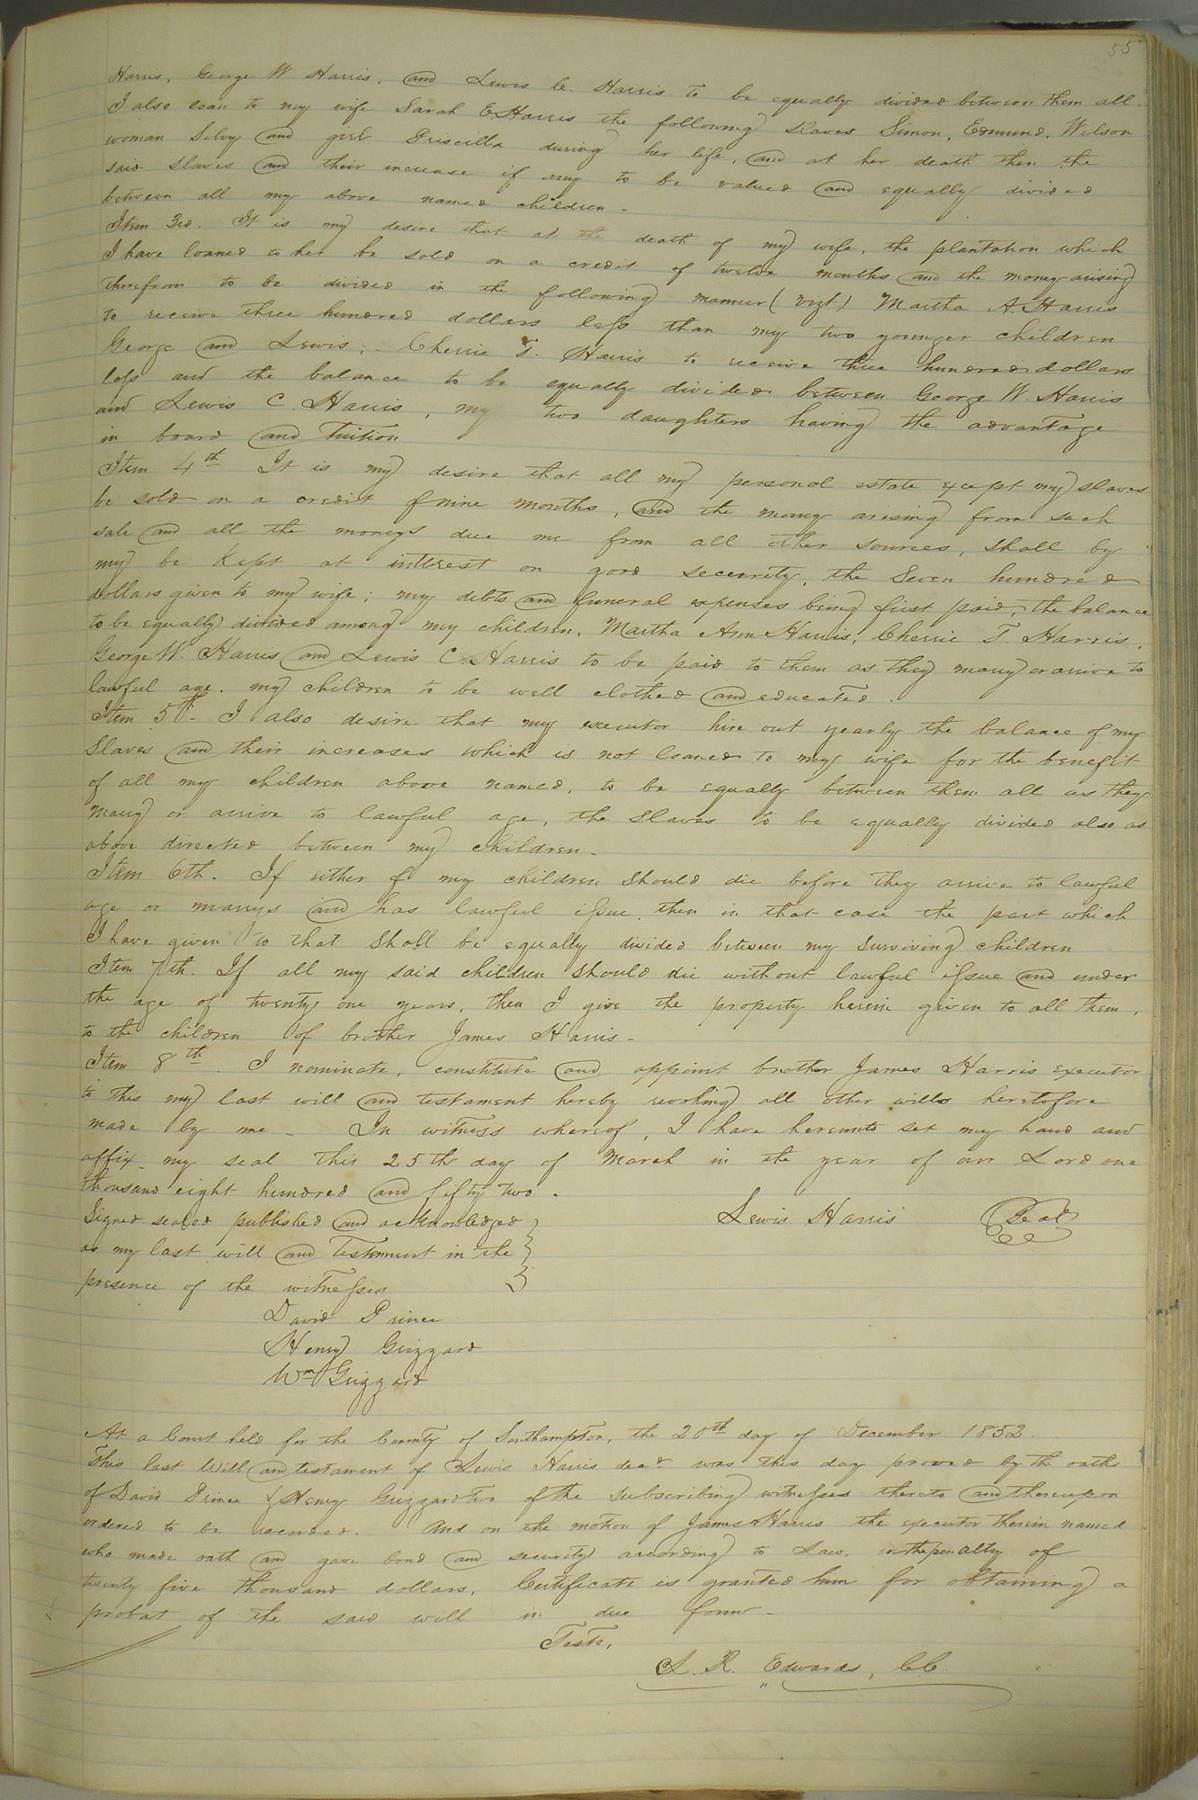 55
Harris, George W Harris, and Lewis C. Harris to be equally divided between them all.
I also loan to my wife Sarah E. Harris the following slaves Simon, Edmund, Wilson
woman Silvy and girl Priscilla during her life, and at her death then the
said slaves and their increase if any to be valued and equally divided
between all my above named children -
Item 3rd. It is my desire that at the death of my wife, the plantation which
I have loaned to her be sold on a credit of twelve months and the money arising
therefrom to be divided in the following manner (vizt) Martha A. Harris
to receive three hundred dollars less than my two younger children
George and Lewis, - Cherrie T. Harris to receive three hundred dollars
less and the balance to be equally divided between George W Harris
and Lewis C. Harris, my two daughters having the advantage
in board and tuition
Item 4th It is my desire that all my personal estate except my slaves
be sold on a credit of nine months, and the money arising from such
sale and all the moneys due me from all other sources, shall by
my be Kept at interest on good security, the Seven hundred
dollars given to my wife; my debts and funeral expenses being first paid, the balance
to be equally divided among my children, Martha Ann Harris, Cherrie T. Harris,
George W. Harris and Lewis C. Harris to be paid to them as they marry or arrive to
lawful age. my children to be well clothed and educated.
Item 5th - I also desire that my executor hire out yearly the balance of my
slaves and their increases which is not loaned to my wife for the benefit
of all my children above named, to be equally between them all as they
marry or arrive to lawful age, the slaves to be equally divided also as
above directed between my children -
Item 6th. If either of my children should die before they arrive to lawful
age or marrys and has lawful issue, then in that case the part which
I have given to that shall be equally divided between my surviving children
Item 7th. If all my said children should die without lawful issue and under
the age of twenty one years, then I give the property herein given to all them,
to the children of brother James Harris -
Item 8th. I nominate, constitute and appoint brother James Harris executor
to this my last will and testament hereby revoking all other wills heretofore
made by me - In witness whereof, I have hereunto set my hand and
affix my seal this 25th day of March in the year of our Lord one
thousand eight hundred and fifty two.
Signed sealed published and acknowledged } Lewis Harris Seal
as my last will and testament in the }
presence of the witnesses }
David Prince
Henry Grizzard
Wm Grizzard
At a Court held for the County of Southampton, the 20th day of December 1852
This last Will and testament of Lewis Harris decd was this day proved by the oaths
of David Prince & Henry Grizzard two of the subscribing witnesses thereto and thereupon
ordered to be recorded. And on the motion of James Harris the executor therein named
who made oath and gave bond and security according to Law, in the penalty of
twenty five thousand dollars, Certificate is granted him for obtaining a
probat of the said will in due form -
Teste,
L. R. Edwards, CC